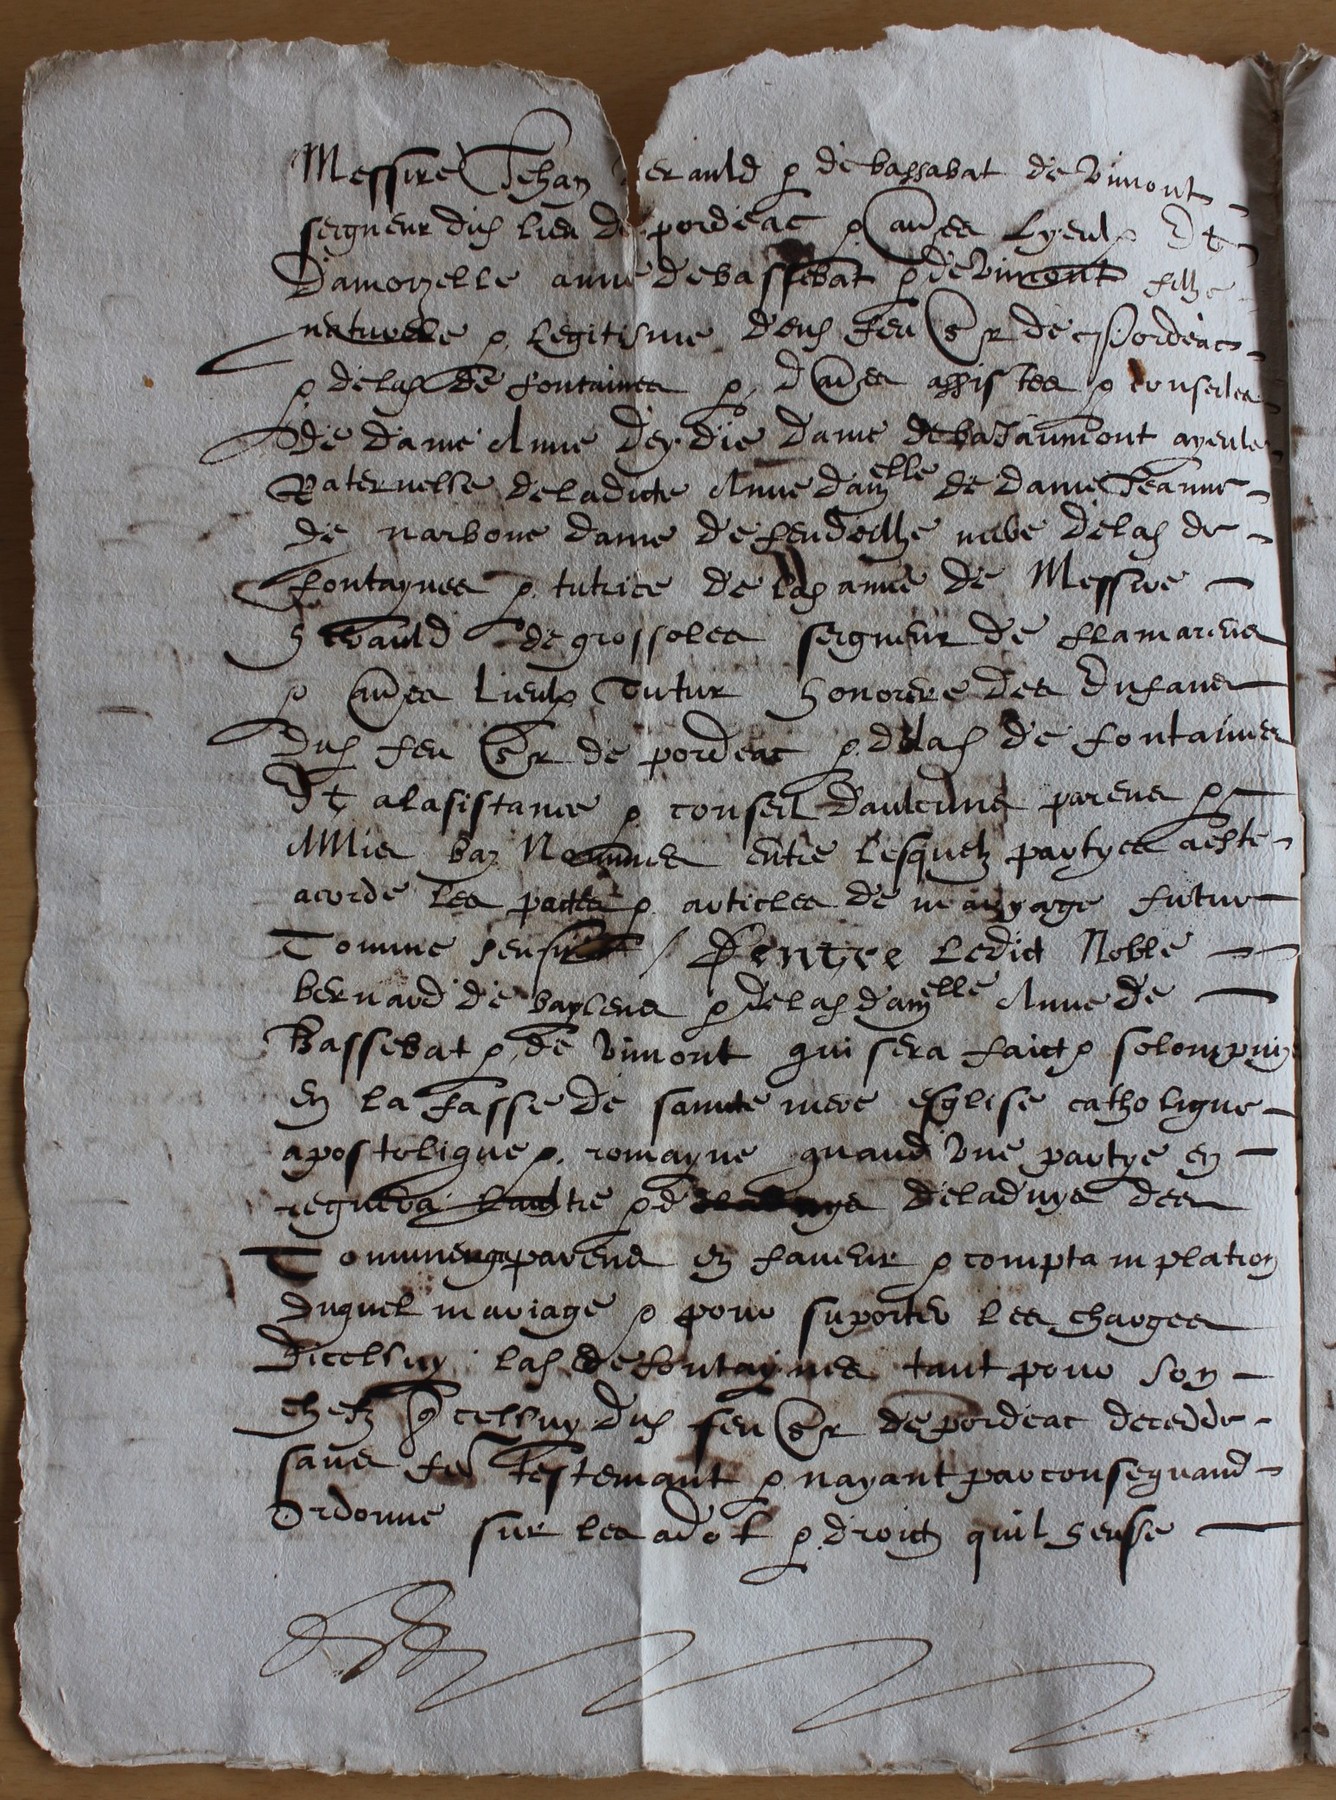 Messire Jehan erauld & de bassabat de vimont
seigneur dud lieu de pordeac & aũes lyeulx Et
Damoyzelle anne de bassebat & de vimont filhe
naturele & legitisme dud feu sr de Pordeac
& delad de fontaines & daũes assistee & conselee
de dame Anne deydie dame de bajaumont ayeule
Paternelle deladicte Anne damelle de dame Jeanne
de narbone dame de fendeilhe mere delad de
fontaynes & tutrice de lad anne de Messire
herauld de grossoles seigneur de flamarens
& aũes lieulx Tutur honorere des Enfans
Dud feu sr de pordeac & delad de fontaines
Et alasistance & conseil daulcuns parens &
Amis bas Nommes entre lesquelz partyes aeste
acorde les pactes & articles de maryage futur
Comme sensuit / Dentre ledict Noble
bernard de baylens & delad damelle Anne de
Bassebat & de vimont qui sera faict & solompniz
en la fasse de saincte mere esglise catholique
apostolique & romayne quand vne partye en
requera laultre & deladuys des
Communs parens en faveur & comptamplation
duquel mariage & pour suporter les charges
Dicelluy lad de fontaynes tant pour son
chefz & celluy dud feu sr de pordeac decedde
sans fe Testemant & nayant parconsequand
Ordonne sur les adot & droictz quil heusse